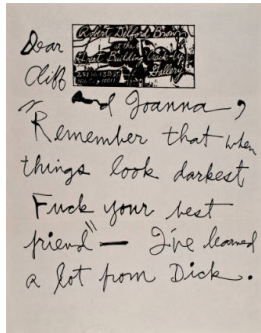 Dear
Cliff
Robert Delford Brown
at the
Great Building Crack-Up
Gallery
and Joanna,
"Remember that when
things look darkest
Fuck your best
friend" — I've learned
a lot from Dick.